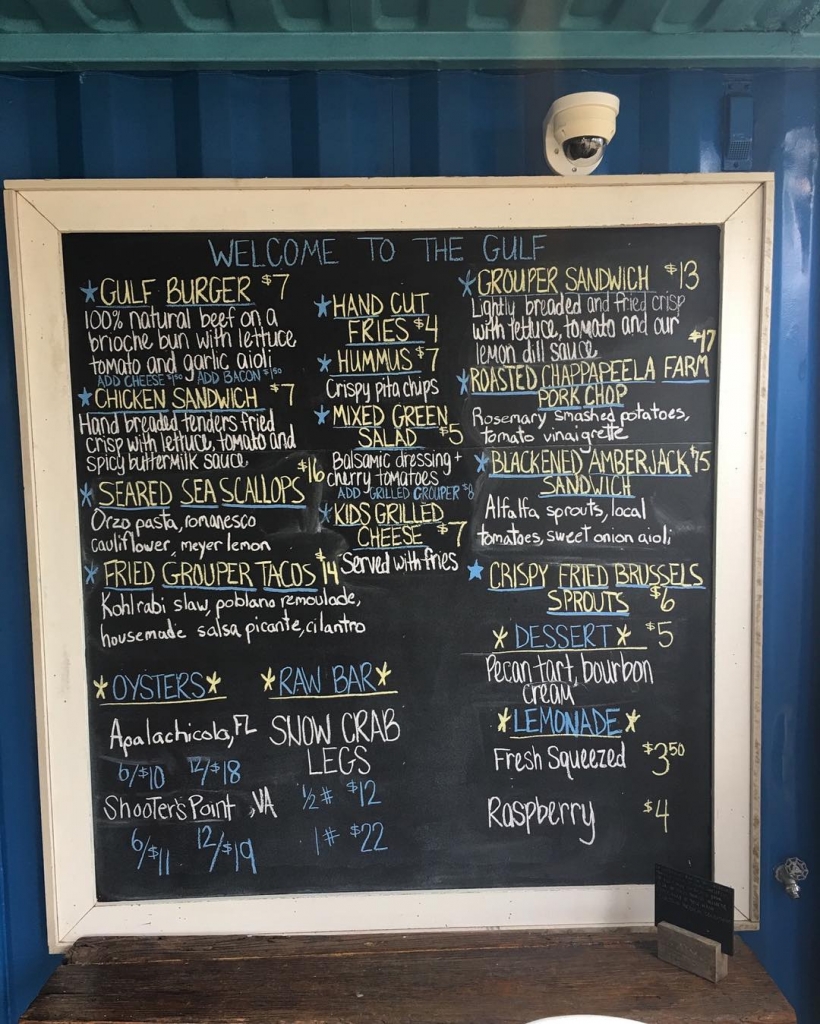 WELCOME TO THE GULF
GULF BURGER $7
100% natural beef on a
brioche bun with lettuce
tomato and garlic aioli
ADD CHEESE $1.50 ADD BACON $1.50
CHICKEN SANDWICH $7
Hand breaded tenders fried
crisp with lettuce, tomato and
spicy buttermilk sauce
$16
SEARED SEA SCALLOPS
Orzo pasta, romanesco
cauliflower, meyer lemon
FRIED GROUPER TACOS $14
Kohlrabi slaw, poblano remoulade,
housemade salsa picante, cilantro
HAND CUT
FRIES $4
HUMMUS $7
Crispy pita chips
MIXED GREEN
SALAD $5
Balsamic dressing +
cherry tomatoes
ADD GRILLED GROUPER $8
KIDS GRILLED
CHEESE $7
Served with fries
GROUPER SANDWICH $13
Lightly breaded and fried crisp
with lettuce, tomato and our
lemon dill sauce
$17
ROASTED CHAPPAPEELA FARM
PORK CHOP
Rosemary smashed potatoes,
tomato vinaigrette
BLACKENED AMBERJACK $15
SANDWICH
Alfalfa sprouts, local
tomatoes, sweet onion aioli
CRISPY FRIED BRUSSELS
SPROUTS $6
DESSERT $5
Pecan tart, bourbon
cream
LEMONADE
Fresh Squeezed $3.50
Raspberry $4
OYSTERS
Apalachicola, FL
6/$10 12/$18
Shooter's Point, VA
6/$11 12/$19
RAW BAR
SNOW CRAB
LEGS
1/2 # $12
1# $22